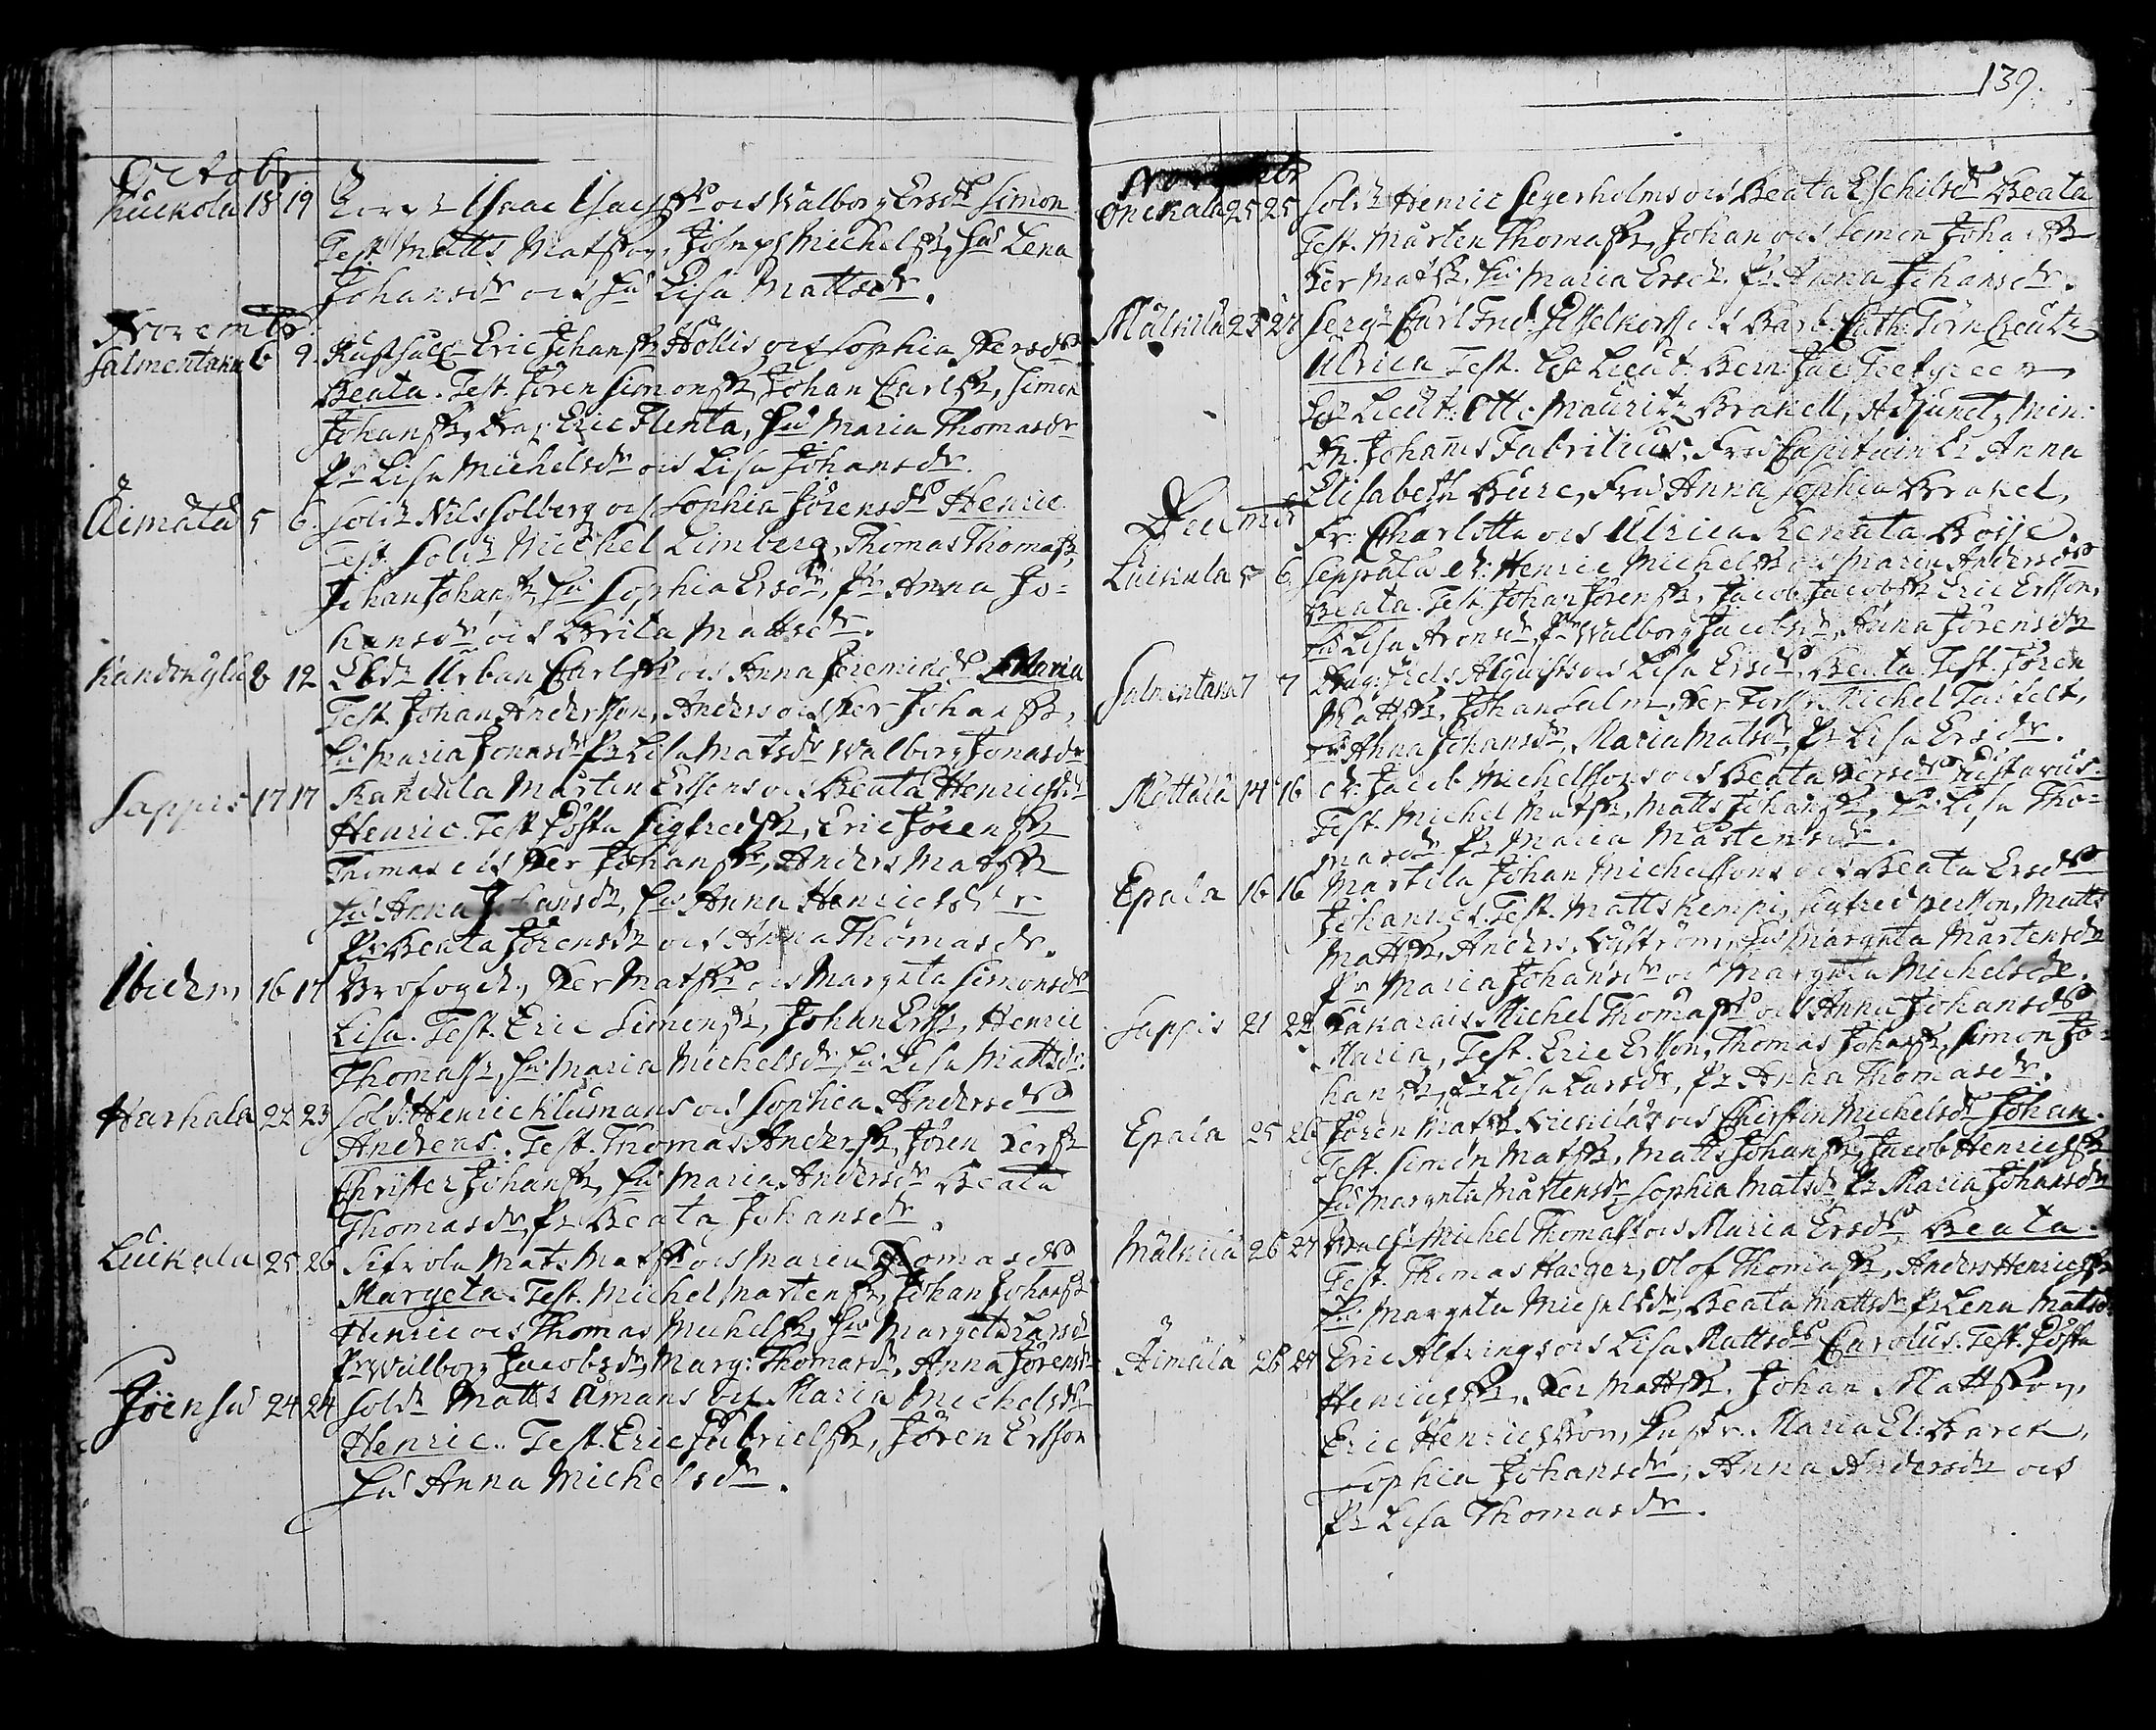 Octobr
Kuckola 18 19 Isaac Isacss wälborg Ersdr Simon
Test. Matts Matsson, Michelss, Hu Lena
Johansdr och Hu Lisa Mattsdr.
Novembr
Salmentaka 6 9. Eric Johanss Hollis och Sophia Persdr
Beata. Test. Jören Simonss, Johan Carlss, Simon
Johanss, Drag. Eric Flenta, Hu Maria Thomasdr
Pr Lisa Michelsdr och Lisa Johansdr.
Äimälä 5 6. Soldr Nils Solberg och Sophia Jörensdr Henric
Test. Soldr Michel Limberg, Thomas Thomass,
Johan Johanss, Hu Sophia Ersdr, Pr Anna Jo-
hansdr och Brita Mattsdr.
8 12 Urban Carlss och Anna Jeremiaedr Maria
Test. Johan Andersson, Anders och Per Johanss,
Hu Maria Jonasdr Pr Lisa Matsdr Walborg Jonasdr
Sappis 17 17 Mårten Erssons och Beata Henricsdr
Henric. Test. Gösta Sigfredss, Eric Jörenss
Thomas och Per Johanss, Anders Matss
Hu Anna Johansdr, Hu Anna Henricsdr
Pr Beata Jörensdr och Anna Thomasdr.
Ibidem 16 17 Per Matss och Margeta Simonsdr
Lisa. Test. Eric Simonss, Johan Erss, Henric
Thomass, Hu Maria Michelsdr Hu Lisa Mattsdr.
Harhala 22 23 Sold: Henric Klumans och Sophia Andersdr
Andreas. Test. Thomas Anderss, Jören Perss
Christer Johanss, Hu Maria Andersdr Beata
Thomasdr, Pr Beata Johansdr.
Luikala 25 26 Mats Matss och Maria Thomasdr
Margeta. Test. Michel Martenss, Johan Johanss
Henric och Thomas Michelss, Hu Margeta Larsdr
Pr Wälborg Jacobsdr, Marg: Thomasdr, Anna Jörensdr
24 24 Soldr Matts Åmans och Maria Michelsdr
Henric. Test. Eric Gabrielss, Jören Ersson
Hu Anna Michelsdr.
139.
Novembr
25 25 Soldr Henric Segerholms och Beata Eschilsdr Beata
Test. Mårten Thomass, Johan och Simon Johanss
Per Matss. Hu Maria Ersdr. Pr Anna Johansdr.
Mälkilä 23 27 Serg: Carl Fred. och Barb. Cath: Törn Creutz
Ulrica Test. Lieut. Bern: Jac:
Lieut: Otto Mauritz Brakell, Adjunct, Min:
Johannes Fabritius. Fru Anna
Elisabeth Bure, Fru Anna Sophia Brakel,
Fr: Charlotta och Ulrica Renata Boije.
Decembr
Luikala 5 6 Seppälä Henric Michelss och Maria Andersdr
Beata. Test. Johan Jörenss, Jacob Jacobss Eric Ersson,
Hu Lisa Aronsdr, Pr Walborg Jacobsdr, Anna Jörensdr
Salmentaka 7 7 Drag: Alquists och Lisa Ersdr, Beata. Test. Jören
Mattss, Johan Salm, Per Michel
Hu Anna Johansdr, Maria Matsdr, Pr Lisa Ersdr.
14 16 Jacob Michelssons och Beata Persdr Gustavus.
Test. Michel Matss, Matts Johanss, Hu Lisa Tho-
masdr Pr Maria Mårtensdr.
Epala 16 16 Martila Johan Michelssons och Beata Ersdr
Johannes. Test. Matts Kempi, Sigfred Persson, Matts
Mattss, Anders, Hu Margeta Mårtensdr
Pr Maria Johansdr och Margeta Michelsdr.
Sappis 21 22 Michel Thomass och Anna Johansdr
Maria, Test. Eric Ersson, Thomas Johanss, Simon Jo-
hanss, Pr Lisa Larsdr, Pr Anna Thomasdr.
Epala 25 26 Jören Matss och Cherstin Michelsdr Johan.
Test. Simon Matss, Matts Johanss, Jacob Henricss
Hu Margeta Mårtensdr Sophia Matsdr Pr Maria Johansdr
Mälkilä 26 27 Michel Thomass och Maria Ersdr Beata.
Test. Thomas Haeger, Olof Thomass, Anders Henricss
Hu Margeta Michelsdr, Beata Mattsdr Pr Lena Matsdr
Äimälä 26 27 Eric Alfvings och Lisa Mattsdr Carolus. Test. Gösta
Henricss, Per Mattss, Johan Mattsson,
Eric Henricsson, Maria El:
Sophia Johansdr, Anna Andersdr och
Pr Lisa Thomasdr.